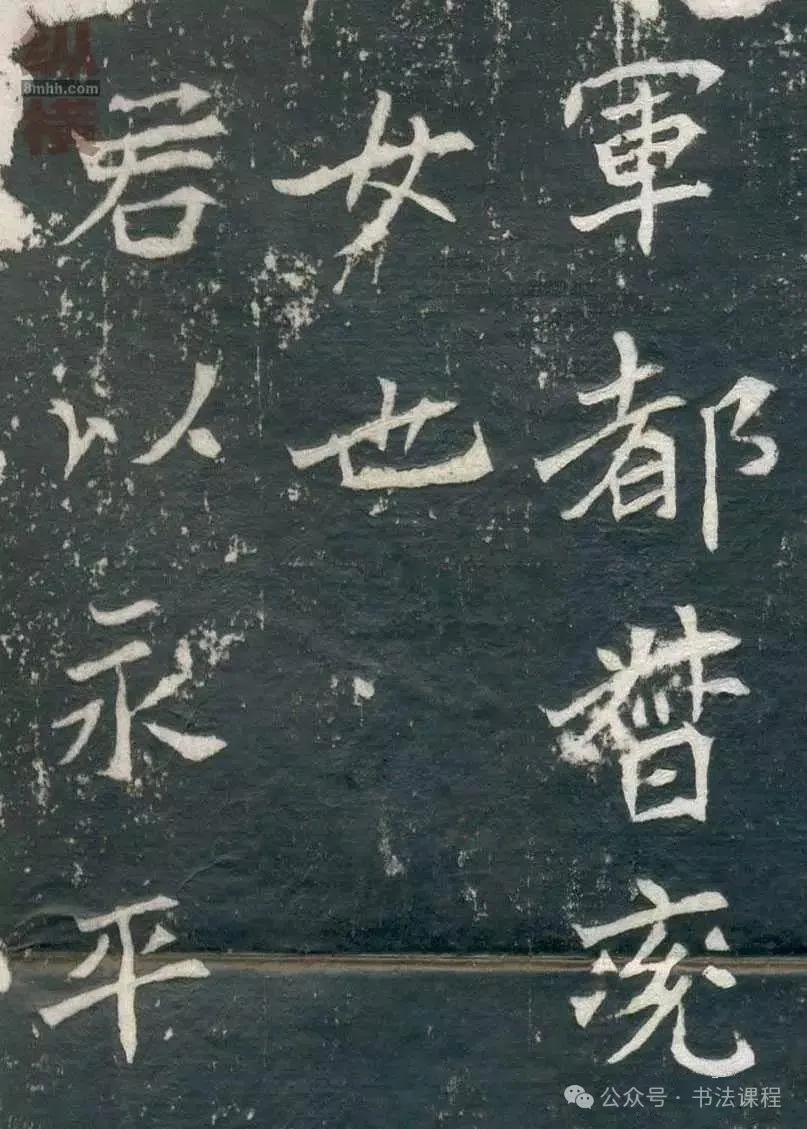 軍都督兖
女也
君以永平
纵横
8mhh.com
公众号 · 书法课程